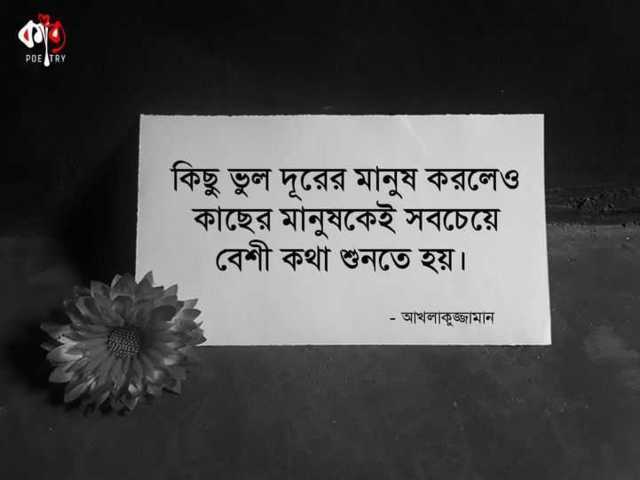 কাব্য
POETRY
কিছু ভুল দূরের মানুষ করলেও
কাছের মানুষকেই সবচেয়ে
বেশী কথা শুনতে হয়।
- আখলাকুজ্জামান